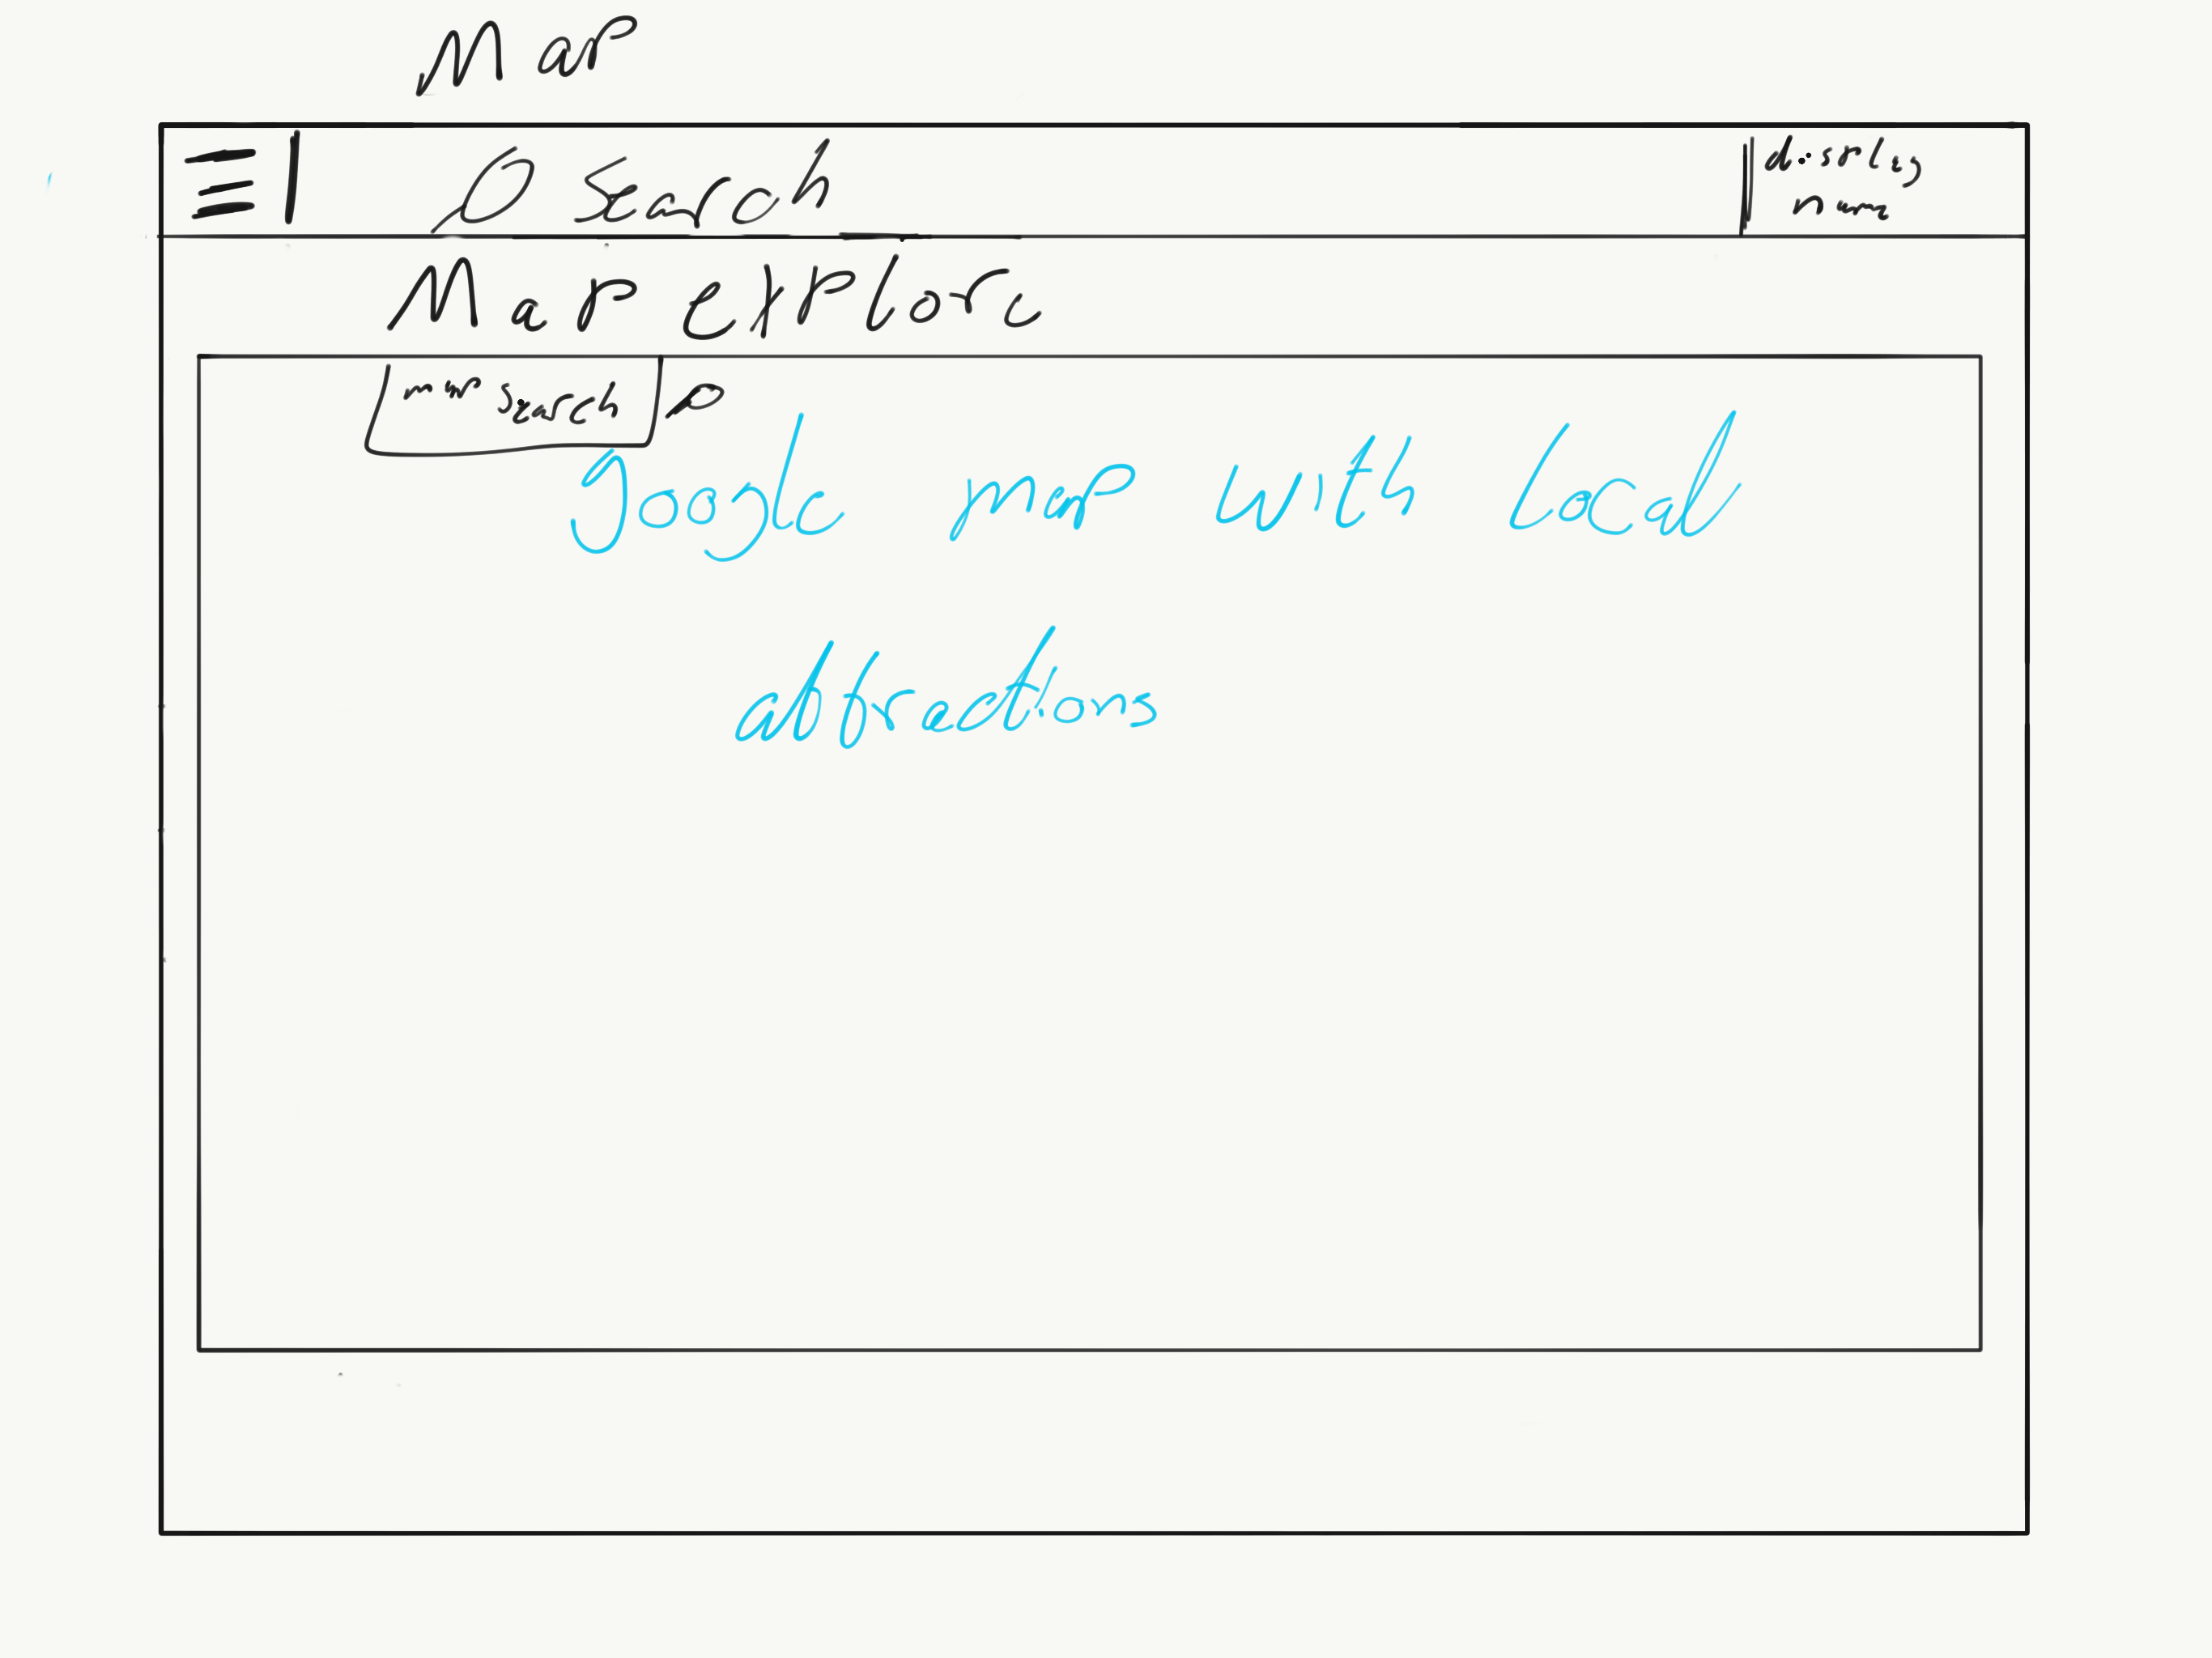 Map
Search
display
name
Map explore
map search
google map with local
attractions